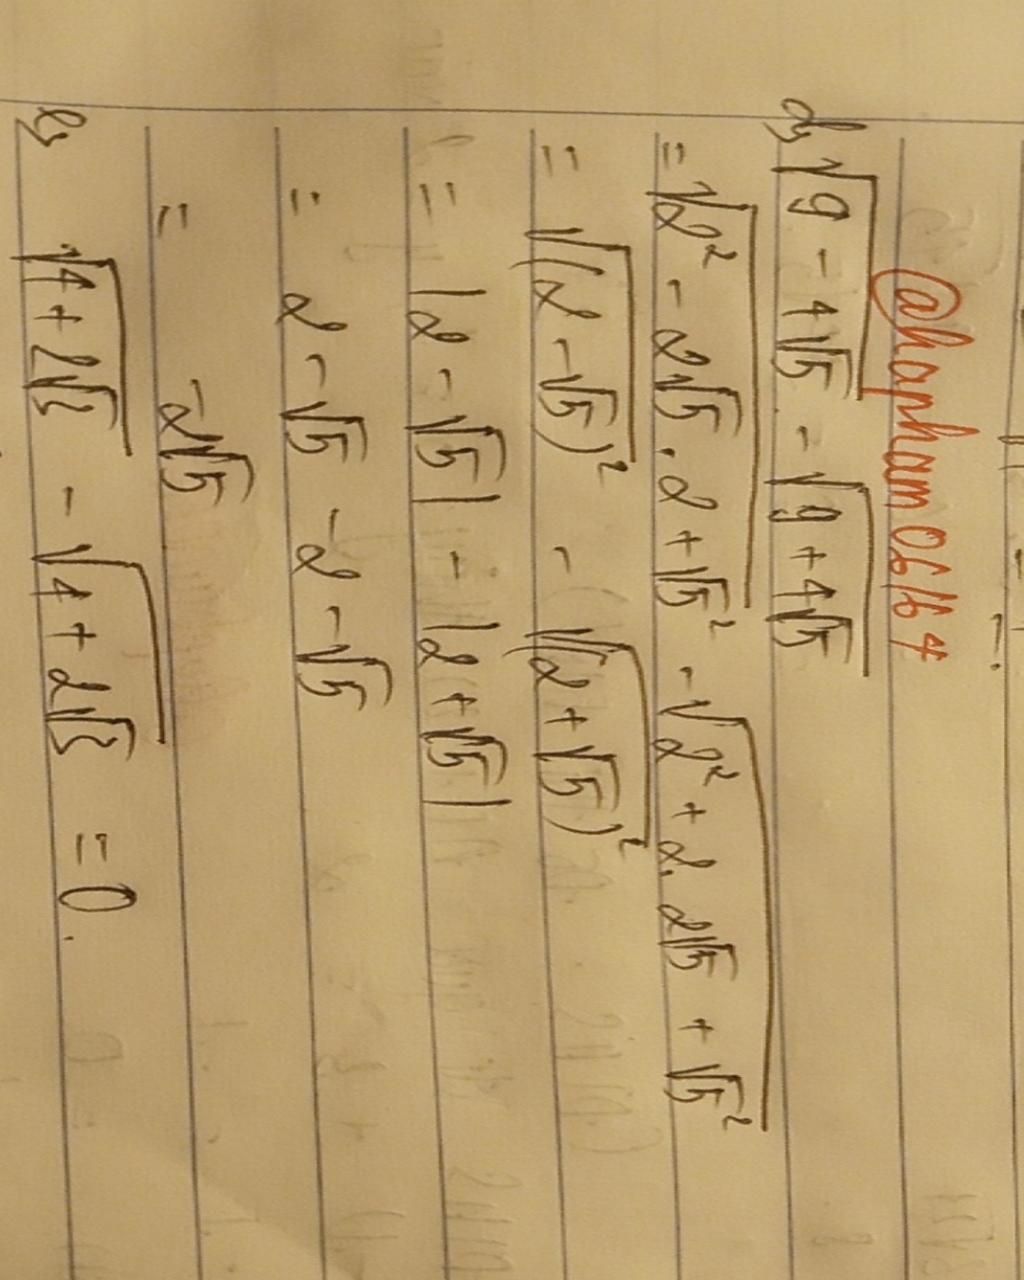 @hapham06164
d, √9 - 4√5 - √9 + 4√5
= √2² - 2√5 . 2 + √5² - √2² + 2. 2√5 + √5²
= √(2 - √5)² - √(2 + √5)²
= |2 - √5| - |2 + √5|
= 2 - √5 - 2 - √5
= -2√5
e, √4 + 2√3 - √4 + 2√3 = 0.